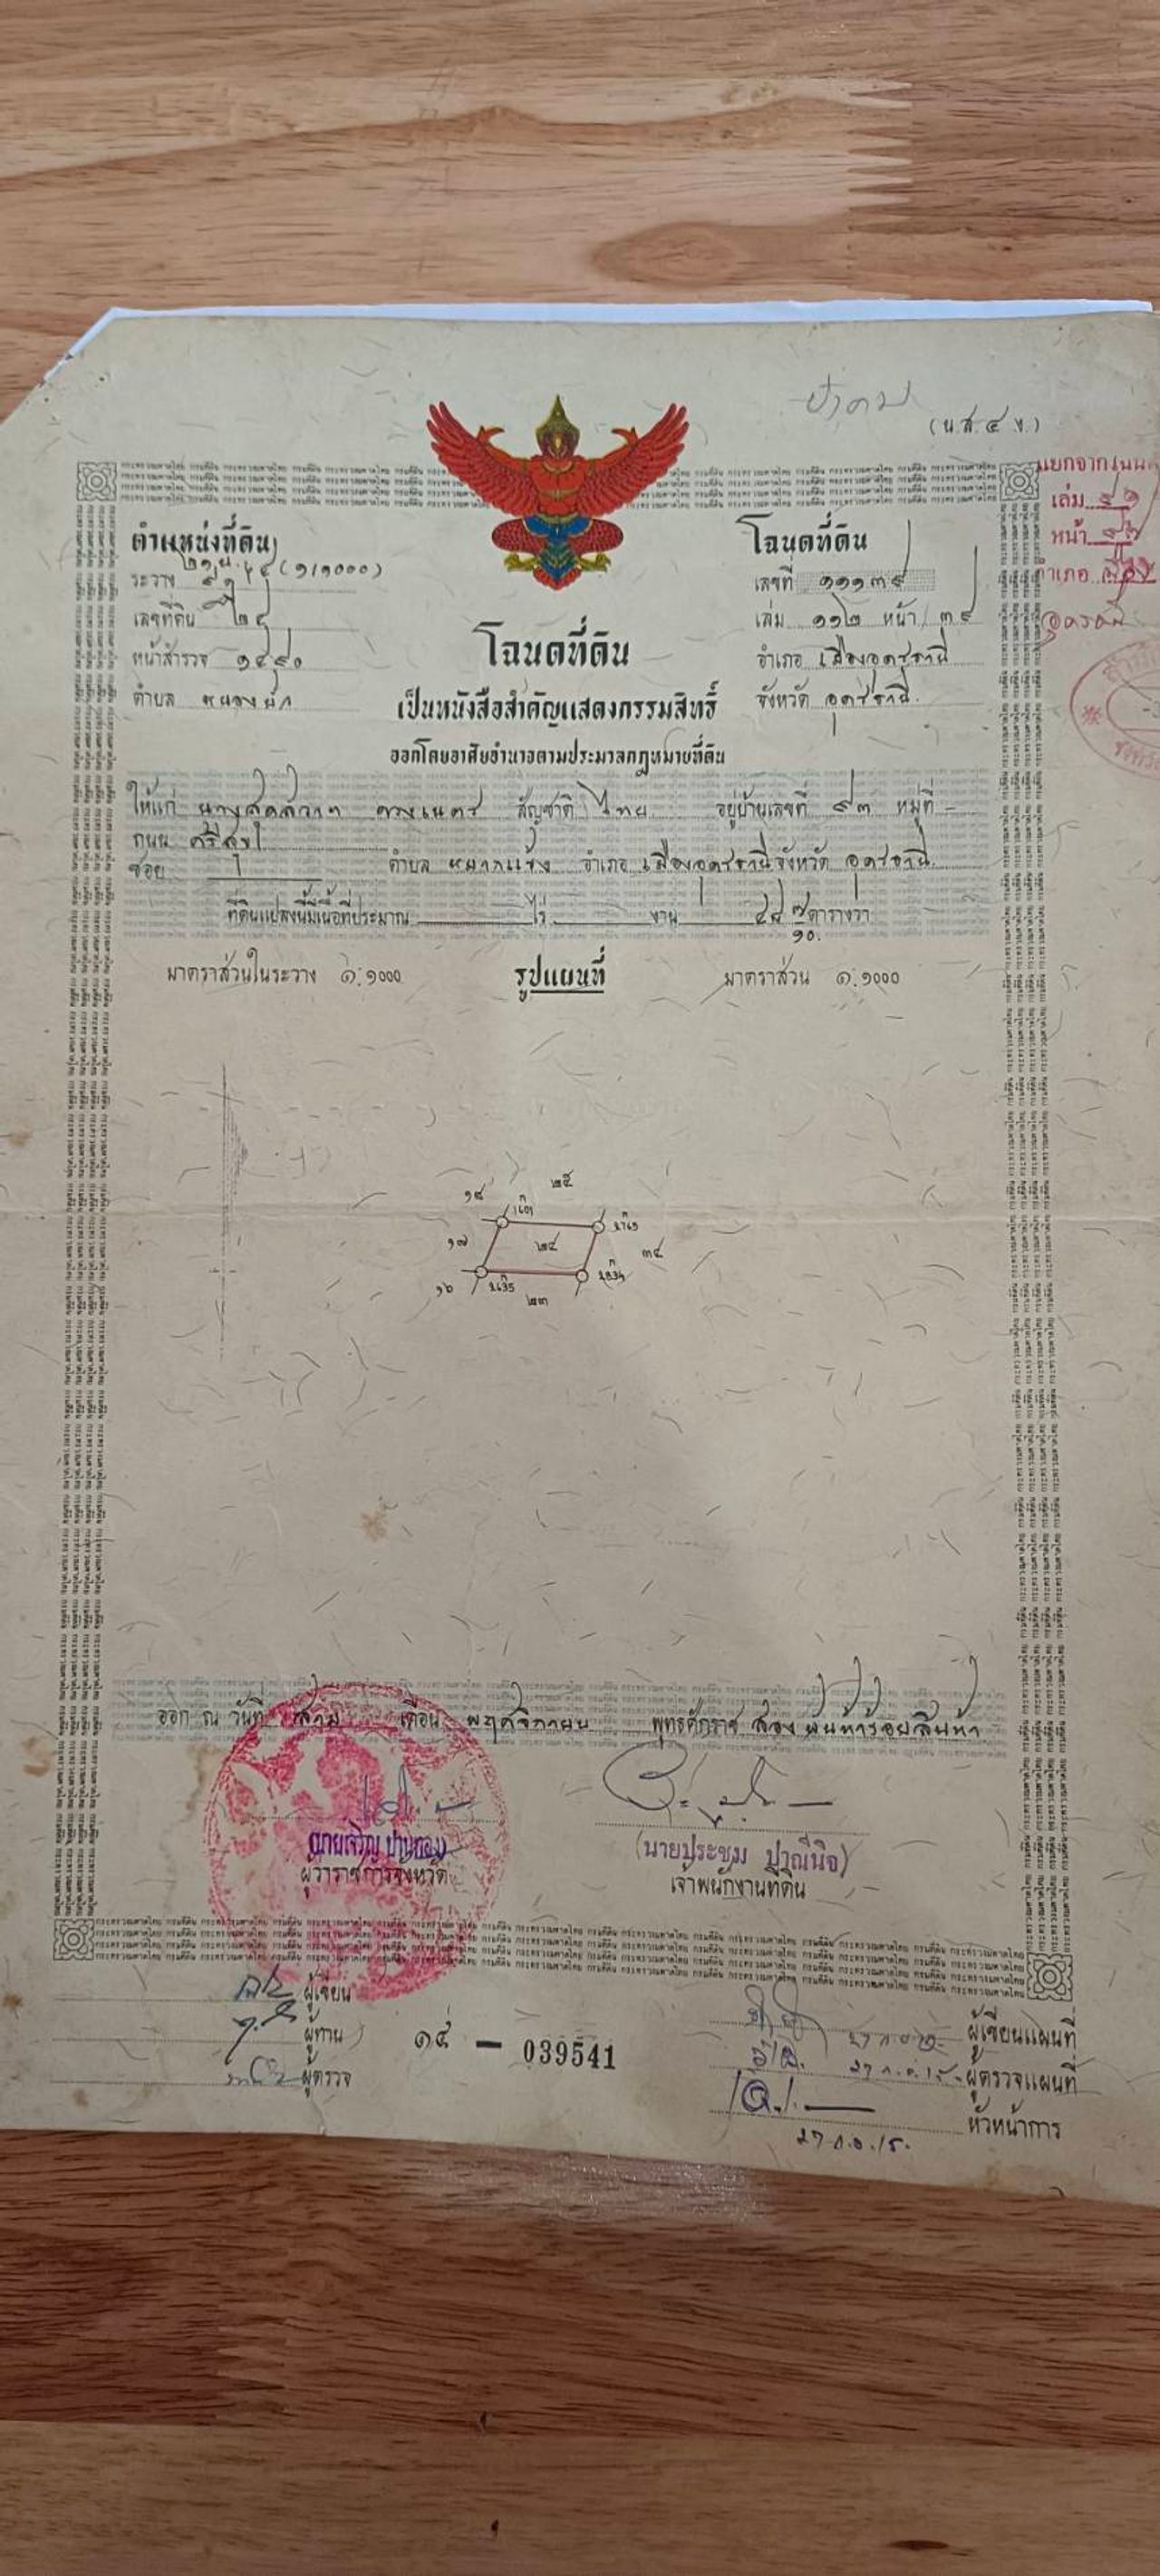 (น.ส. ๔ ข.)
ตำแหน่งที่ดิน
ระวาง (๑/๑๐๐๐)
เลขที่ดิน ๒๔
หน้าสำรวจ ๑๔๙๐
ตำบล
โฉนดที่ดิน
เลขที่ ๑๑๑๓๙
เล่ม ๑๑๒ หน้า ๓๙
อำเภอ เมืองอุดรธานี
จังหวัด อุดรธานี
แยกจากโฉนด
เล่ม
หน้า
อำเภอ เมือง
อุดรธานี
โฉนดที่ดิน
เป็นหนังสือสำคัญแสดงกรรมสิทธิ์
ออกโดยอาศัยอำนาจตามประมวลกฎหมายที่ดิน
ให้แก่ นาง ดวงเนตร สัญชาติ ไทย อยู่บ้านเลขที่ ๙๓ หมู่ที่ -
ถนน ศรีสุข
ซอย ตำบล หมากแข้ง อำเภอ เมืองอุดรธานี จังหวัด อุดรธานี
ที่ดินแปลงนี้มีเนื้อที่ประมาณ ไร่ งาน ๔๘ ๗/๑๐ ตารางวา
มาตราส่วนในระวาง ๑:๑๐๐๐ รูปแผนที่ มาตราส่วน ๑:๑๐๐๐
๒๕
๒๔
๓๔
๑๗
๑๖
๒๓
ออก ณ วันที่ สาม เดือน พฤศจิกายน พุทธศักราช สองพันห้าร้อยสิบห้า
(นายเจริญ ปานทอง)
ผู้ว่าราชการจังหวัด
(นายประชุม ปาณีนิจ)
เจ้าพนักงานที่ดิน
ผู้เขียน
ผู้ทาน
ผู้ตรวจ
๑๙ - 039541
ผู้เขียนแผนที่
ผู้ตรวจแผนที่
หัวหน้าการ